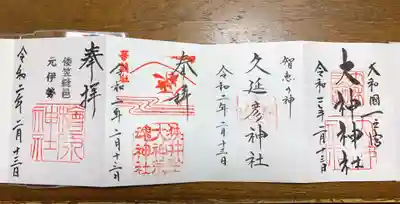 大和國一之宮
大神神社
令和二年二月十三日
智恵の神
久延彦神社
令和二年二月十三日
奉拝
狭井坐
大神荒
魂神社
令和二年二月十三日
奉拝
倭笠縫邑
元伊勢
檜原
神社
令和二年二月十三日